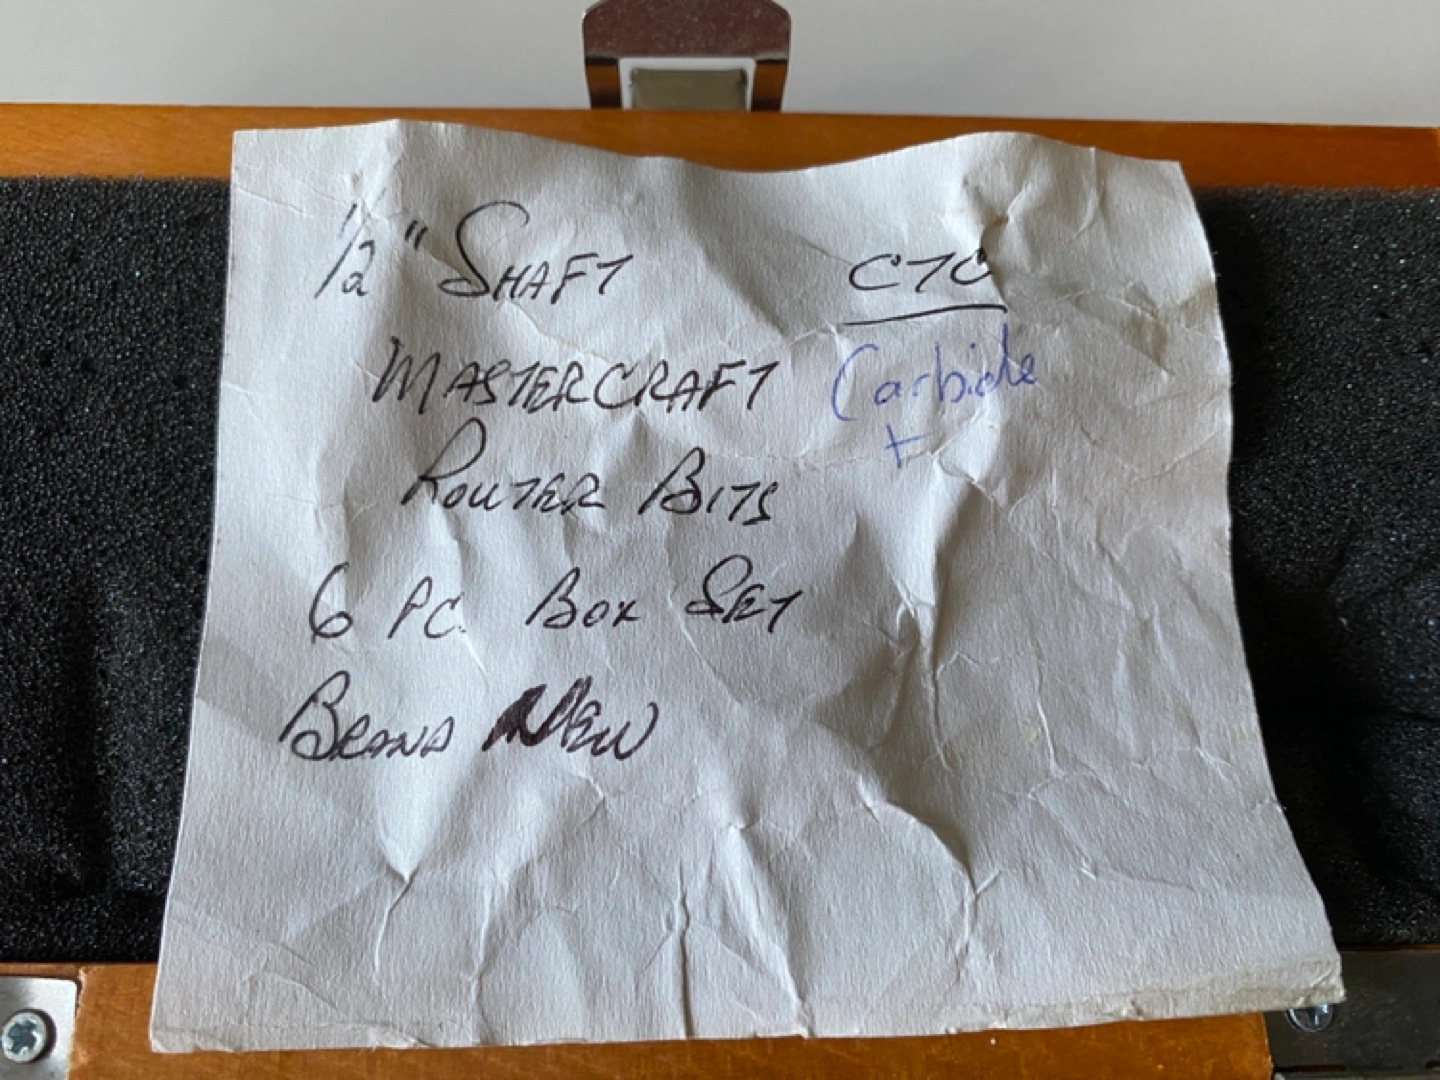 1/2" SHAFT
CTC
MASTERCRAFT
Carbide
+
ROUTER BITS
6 PC. BOX SET
BRAND NEW